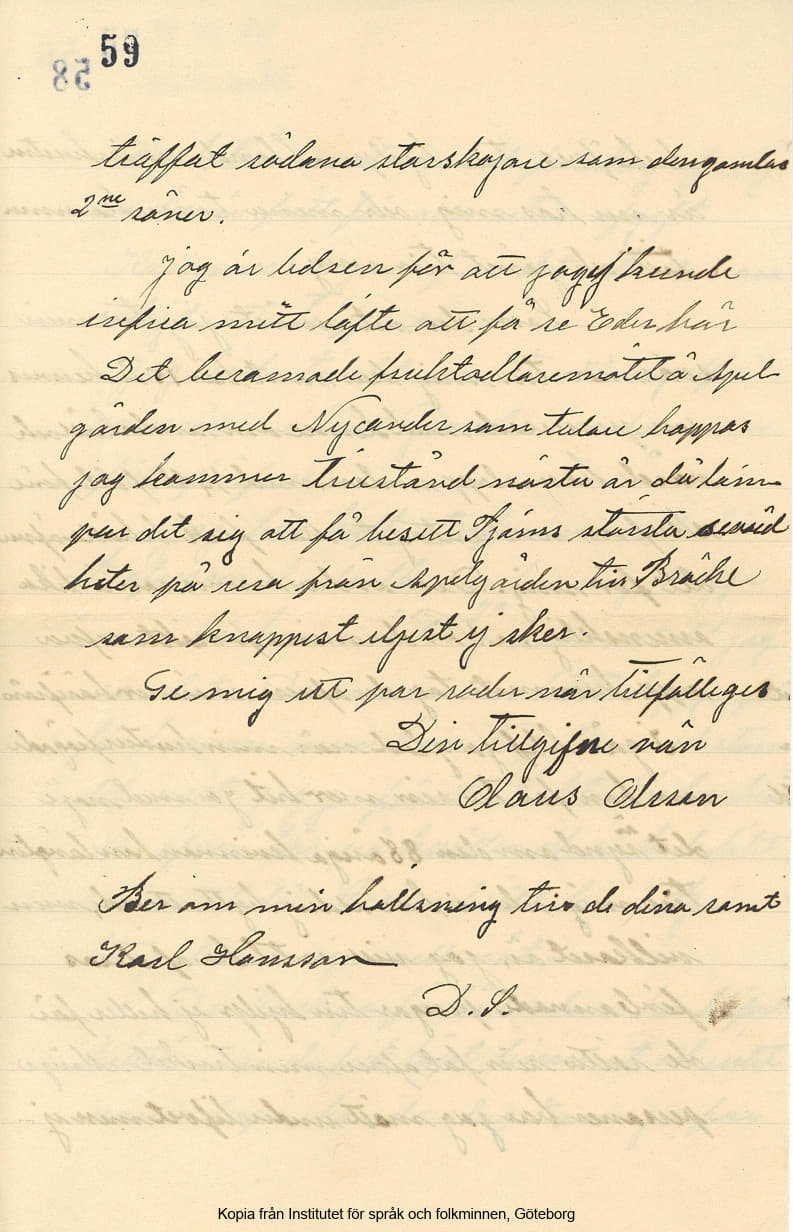 59
58
träffat sådana storskojare som dengamlas
2ne söner.
Jag är ledsen för att jag ej kunde
infria mitt löfte att få se Eder här
Det beramade fruktodlaremötet å Apel
gården med Nycander som talare hoppas
jag kommer tillstånd nästa år då läm
par det sig att få besett Tjörns största sevärd
heter på resa från Apelgården till Bräcke
som knappest eljest ej sker.
Ge mig ett par rader när tillfälleges
Din tillgifne vän
Olaus Olsson
Ber om min hällsning till de dina samt
Karl Hansson
D. S.
Kopia från Institutet för språk och folkminnen, Göteborg